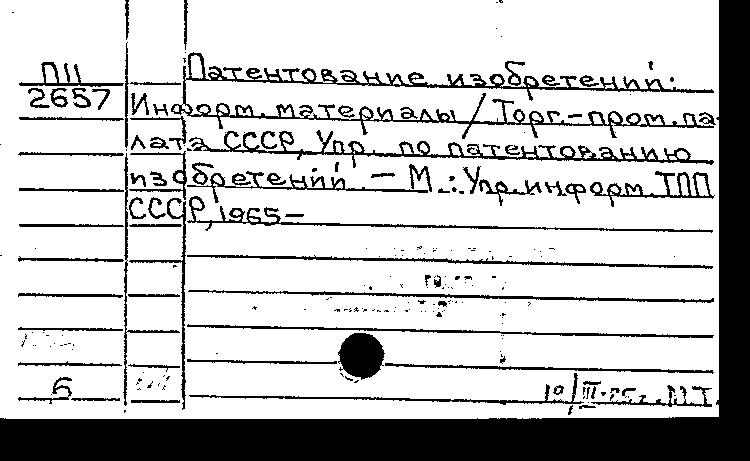 П11
2657
Патентование изобретений:
Информ. материалы / Торг.-пром. па-
лата СССР, Упр. по патентованию
изобретений. — М.: Упр. информ. ТПП
СССР, 1965—
6